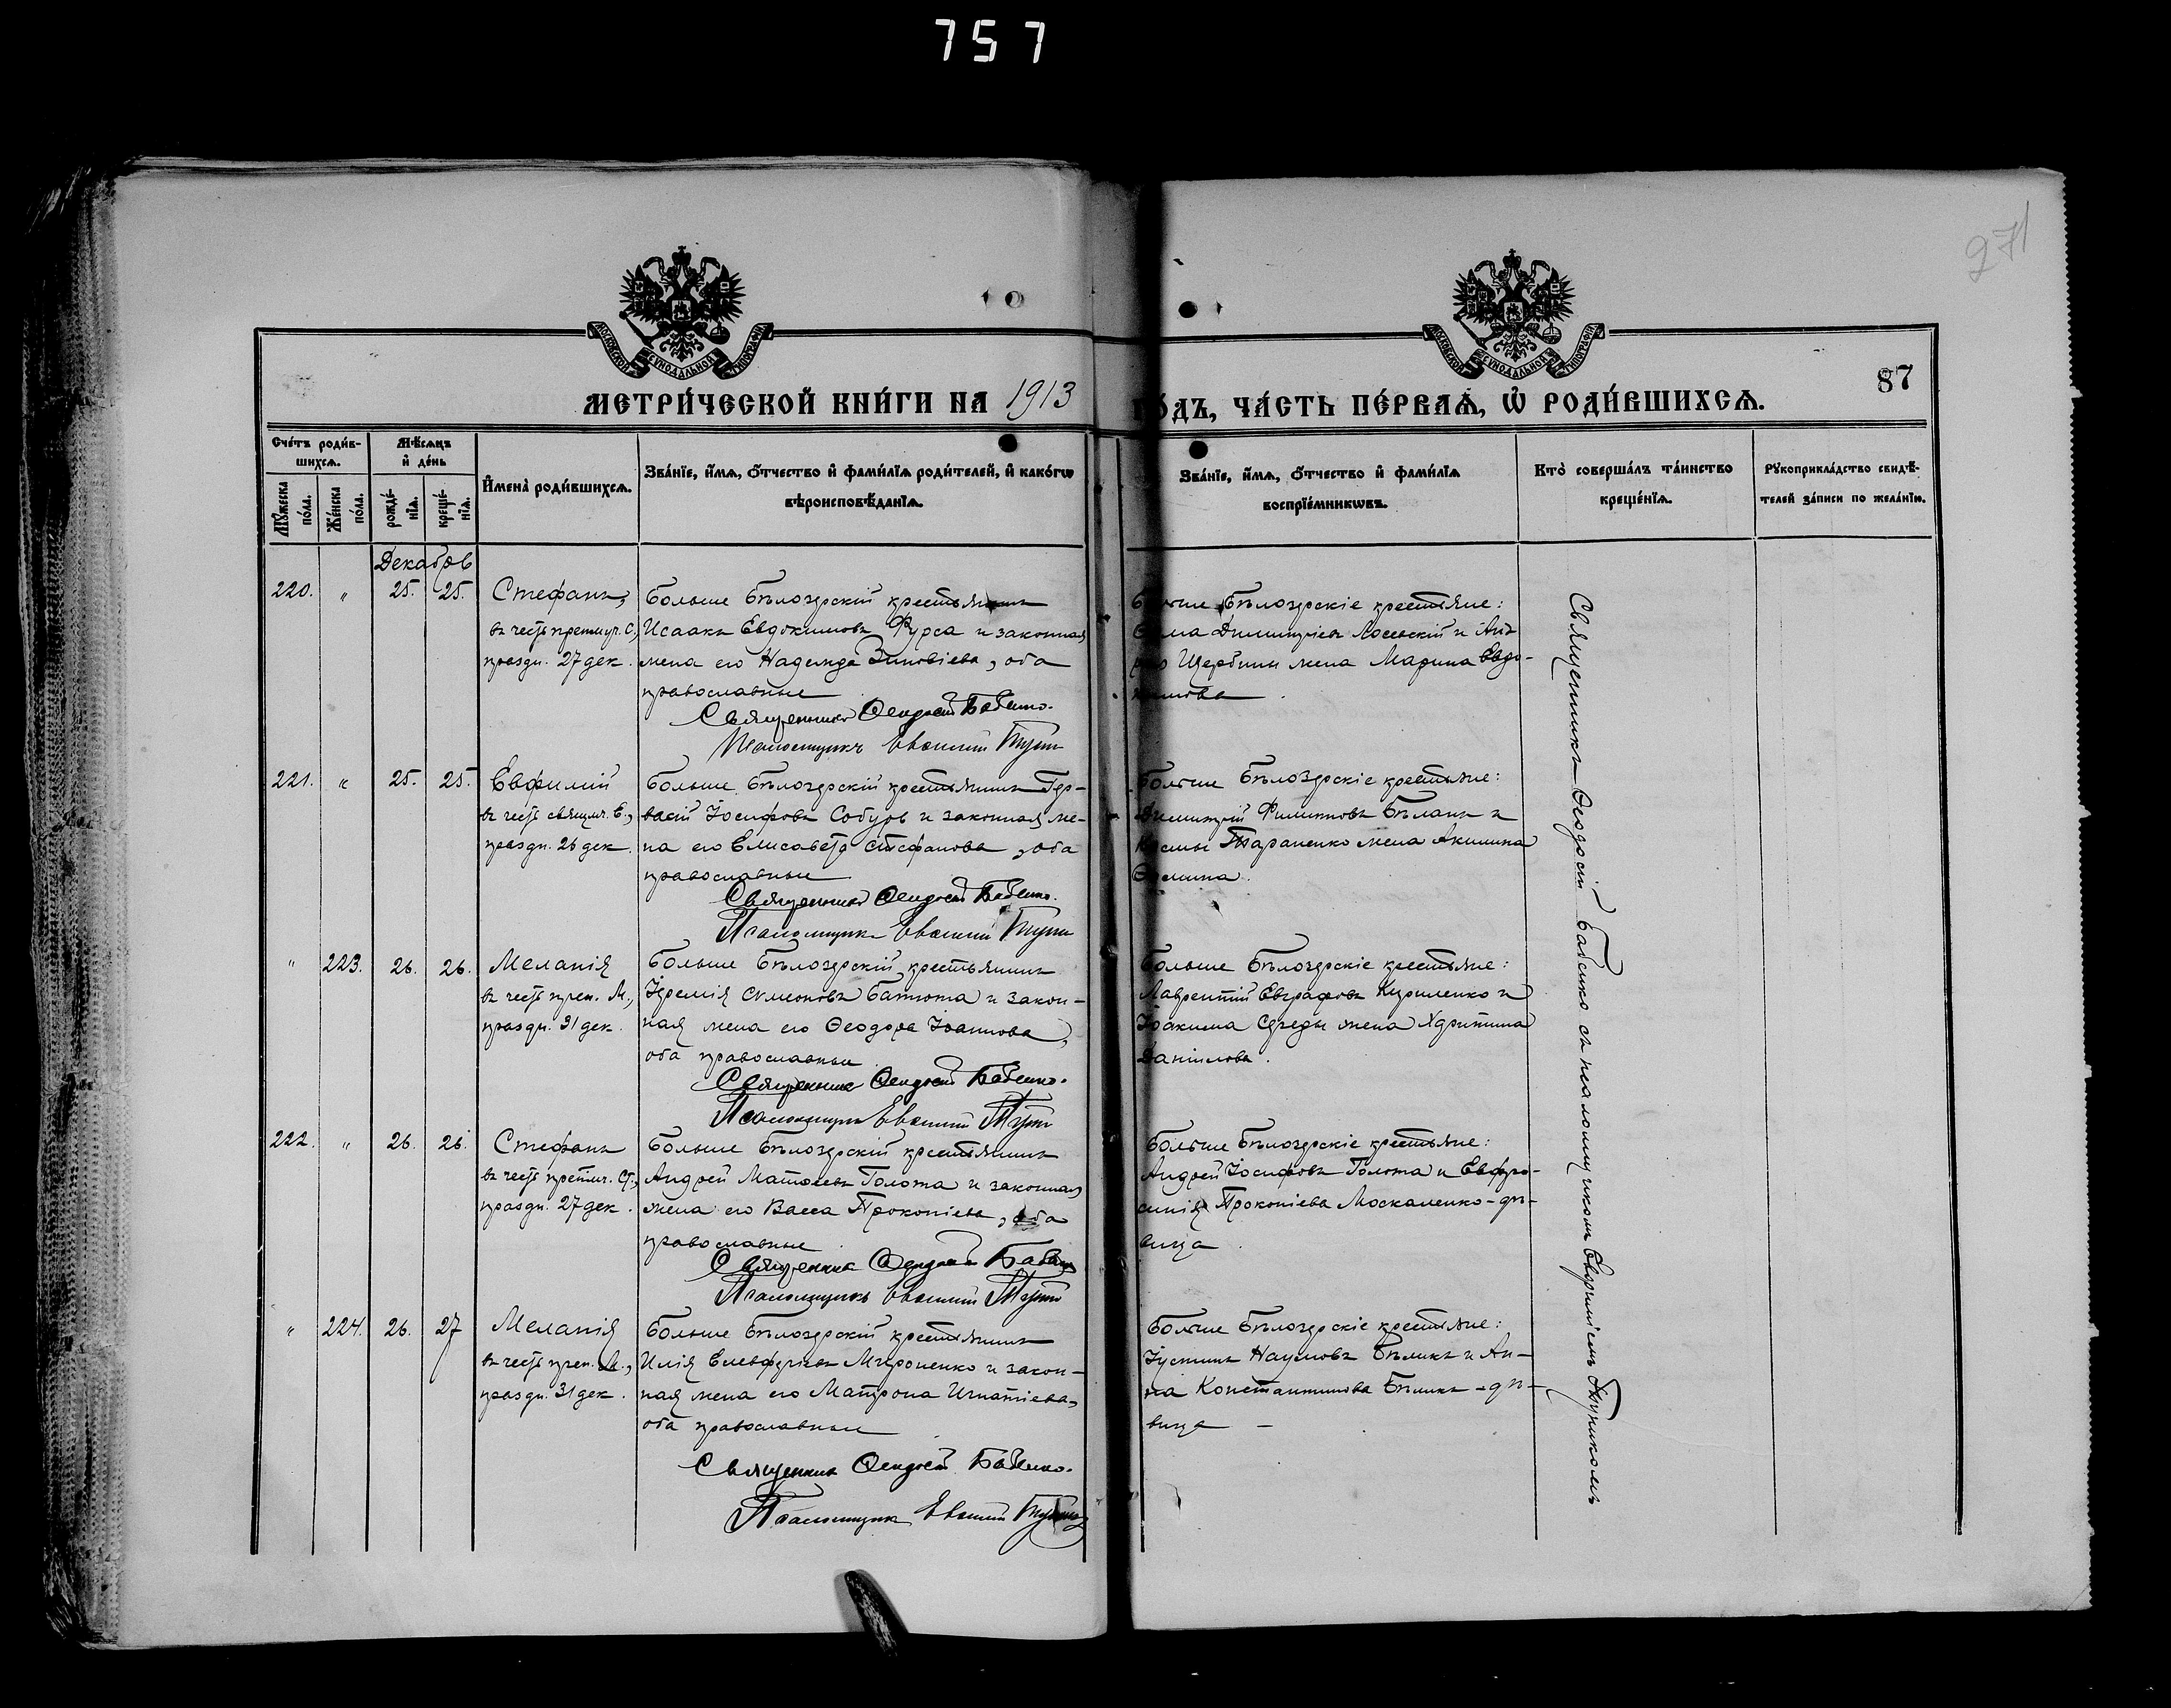 757
271
МОСКОВСКОЙ СѴНОДАЛЬНОЙ ТИПОГРАФІИ
МОСКОВСКОЙ СѴНОДАЛЬНОЙ ТИПОГРАФІИ
МЕТРИ́ЧЕСКОЙ КНИ́ГИ НА 1913
ГО́ДЪ, ЧА́СТЬ ПЕ́РВАѦ, Ѡ҆ РОДИ́ВШИХСѦ.
87
Сче́тъ роди́в-
шихсѧ.
Мꙋ́жеска по́ла.
Же́нска по́ла.
Мѣ́сѧцъ
и҆ де́нь
рожде́нїѧ.
креще́нїѧ.
И҆мена̀ роди́вшихсѧ.
Зва́нїе, и҆́мѧ, ѻ҆́тчество и҆ фами́лїѧ роди́телей, и҆ како́гѡ
вѣроисповѣ́данїѧ.
Зва́нїе, и҆́мѧ, ѻ҆́тчество и҆ фами́лїѧ
воспрїе́мникѡвъ.
Кто̀ соверша́лъ та́инство
креще́нїѧ.
Рꙋкоприкла́дство свидѣ́-
телей за́писи по жела́нїю.
Декабрь
220. " 25. 25. Стефанъ,
въ честь препмуч. С.,
праздн. 27 дек.
Больше Бѣлозерскій крестьянинъ
Исаакъ Евдокимовъ Фурса и законная
жена его Надежда Зиновіева, оба
православные
Священникъ Ѳеодосій Бабенко.
Псаломщикъ Евѳимій
Больше Бѣлозерскіе крестьяне:
Димитріевъ Лосевскій и Анд
Щербины жена Марина Евдо-
кимова.
221. " 25. 25. Евфимій
въ честь свящмч. Е.,
праздн. 26 дек.
Больше Бѣлозерскій крестьянинъ Гер-
васій Іосифовъ Собуръ и законная же-
на его Елисавета Стефанова, оба
православные
Священникъ Ѳеодосій Бабенко.
Псаломщикъ Евѳимій
Больше Бѣлозерскіе крестьяне:
Димитрій Филипповъ Бѣланъ и
Космы Тараненко жена Акилина
Ѳомина.
" 223. 26. 26. Меланія
въ честь преп. М.,
праздн. 31 дек.
Больше Бѣлозерскій крестьянинъ
Іеремія Симеоновъ Батюта и закон-
ная жена его Ѳеодора Іоаннова,
оба православные
Священникъ Ѳеодосій Бабенко.
Псаломщикъ Евѳимій
Больше Бѣлозерскіе крестьяне:
Лаврентій Евграфовъ Кириленко и
Іоакима Середы жена Харитина
Даніилова.
222. " 26. 26. Стефанъ
въ честь препмч. Ст.,
праздн. 27 дек.
Больше Бѣлозерскій крестьянинъ
Андрей Матѳеевъ Голота и законная
жена его Васса Прокопіева, оба
православные.
Священникъ Ѳеодосій Бабенко
Псаломщикъ Евѳимій
Больше Бѣлозерскіе крестьяне:
Андрей Іосифовъ Голота и Евфро-
синія Прокопіева Москаленко - дѣ-
вица.
" 224. 26. 27 Меланія
въ честь преп. М.,
праздн. 31 дек.
Больше Бѣлозерскій крестьянинъ
Илія Елевферіевъ Мироненко и закон-
ная жена его Матрона Игнатіева,
оба православные
Священникъ Ѳеодосій Бабенко.
Псаломщикъ Евѳимій
Больше Бѣлозерскіе крестьяне:
Іустинъ Наумовъ Бѣликъ и Ан-
на Константинова Бѣликъ - дѣ-
вица -
Священникъ Ѳеодосій Бабенко съ псаломщикомъ Евѳиміемъ